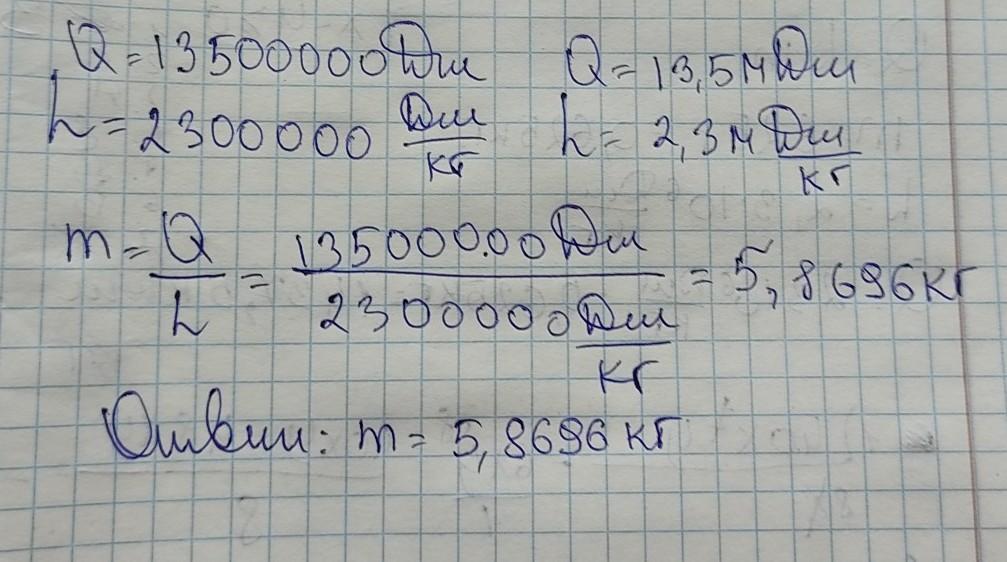 Q = 13500000 Дж Q = 13,5 МДж
L = 2300000 Дж/кг L = 2,3 М Дж/кг
m = Q/L = 13500000 Дж / 2300000 Дж/кг = 5,8696 кг
Ответ: m = 5,8696 кг